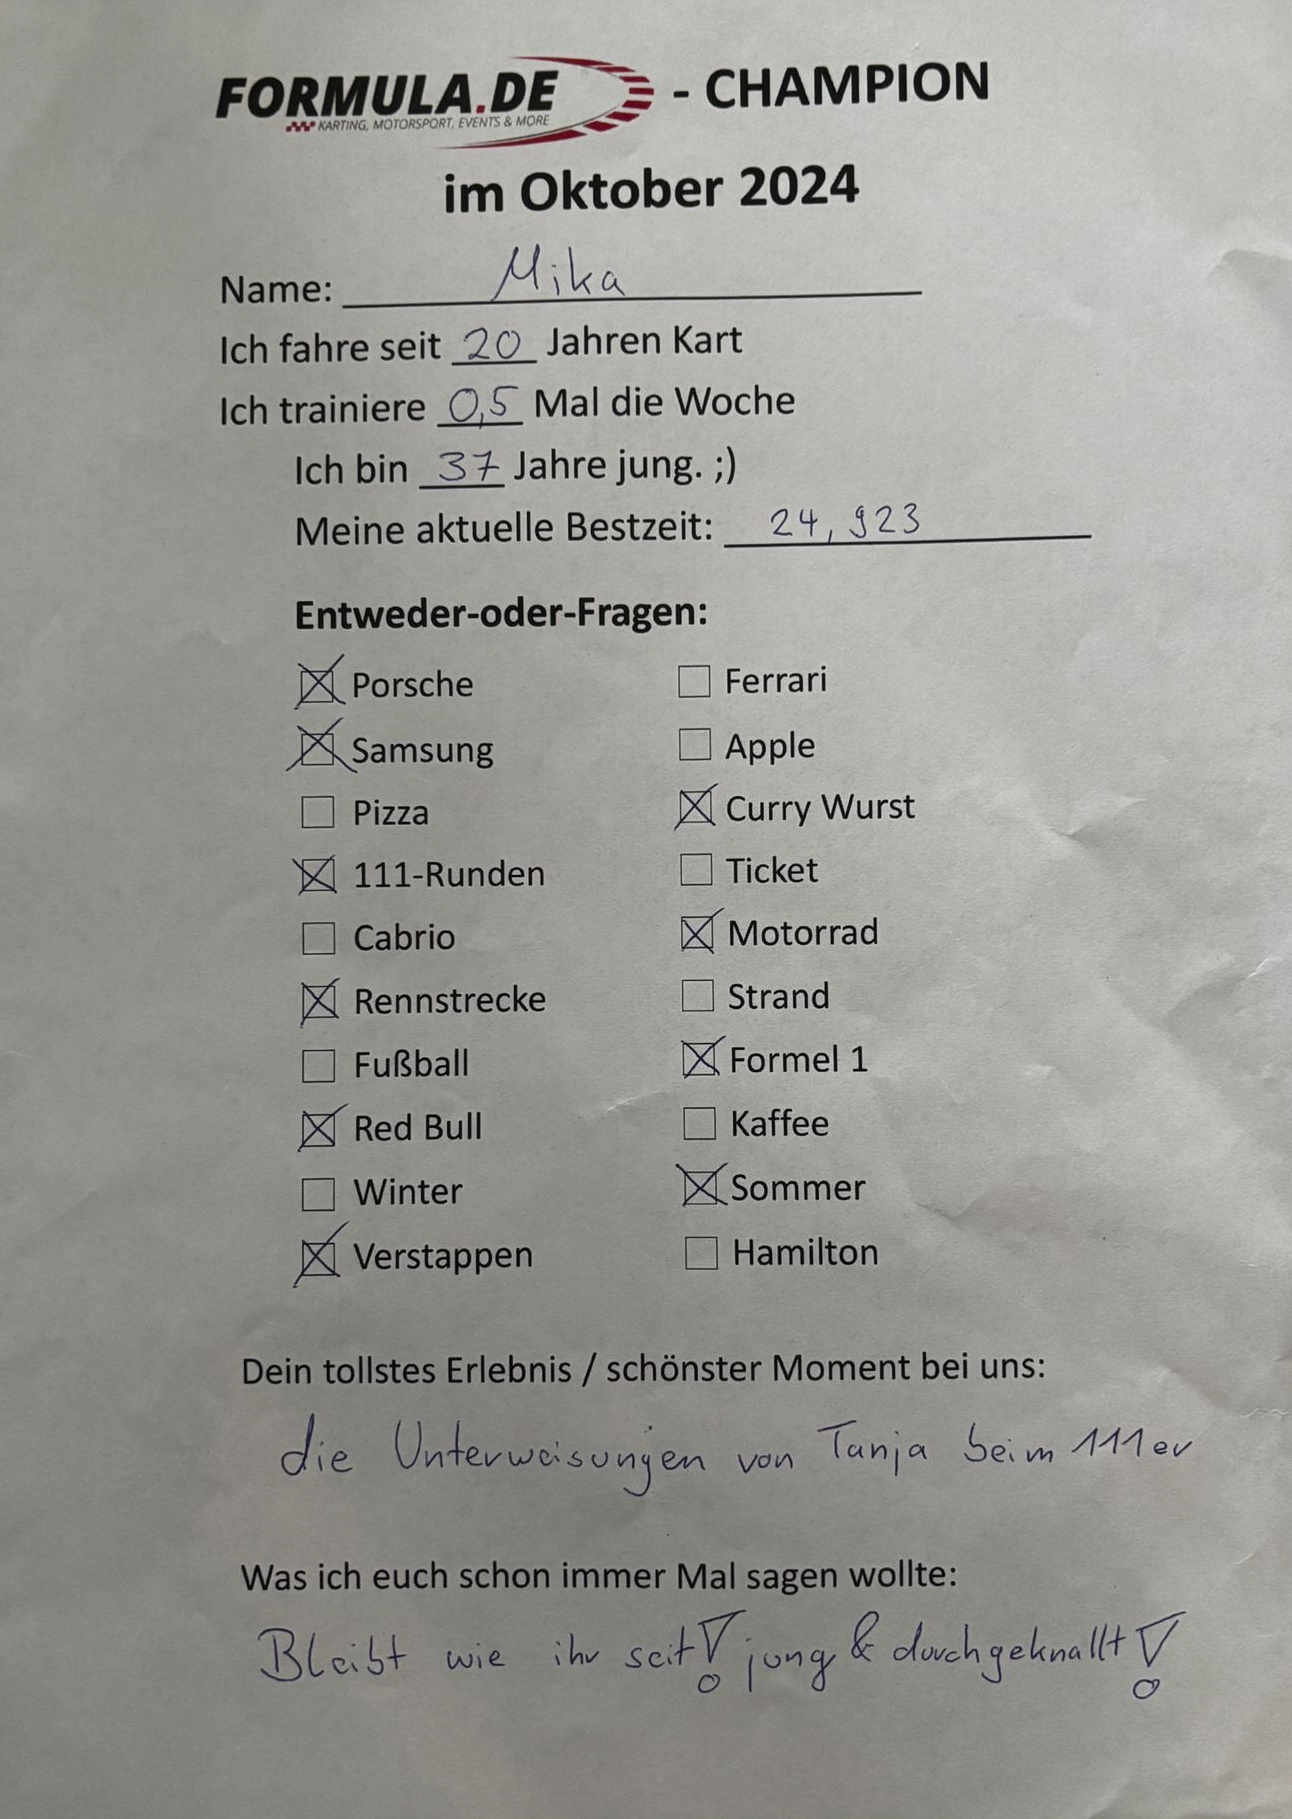 FORMULA.DE - CHAMPION
KARTING, MOTORSPORT, EVENTS & MORE
im Oktober 2024
Name: Mika
Ich fahre seit 20 Jahren Kart
Ich trainiere 0,5 Mal die Woche
Ich bin 37 Jahre jung. ;)
Meine aktuelle Bestzeit: 24,923
Entweder-oder-Fragen:
☒ Porsche ☐ Ferrari
☒ Samsung ☐ Apple
☐ Pizza ☒ Curry Wurst
☒ 111-Runden ☐ Ticket
☐ Cabrio ☒ Motorrad
☒ Rennstrecke ☐ Strand
☐ Fußball ☒ Formel 1
☒ Red Bull ☐ Kaffee
☐ Winter ☒ Sommer
☒ Verstappen ☐ Hamilton
Dein tollstes Erlebnis / schönster Moment bei uns:
die Unterweisungen von Tanja beim 111er
Was ich euch schon immer Mal sagen wollte:
Bleibt wie ihr seit! jung & durchgeknallt!